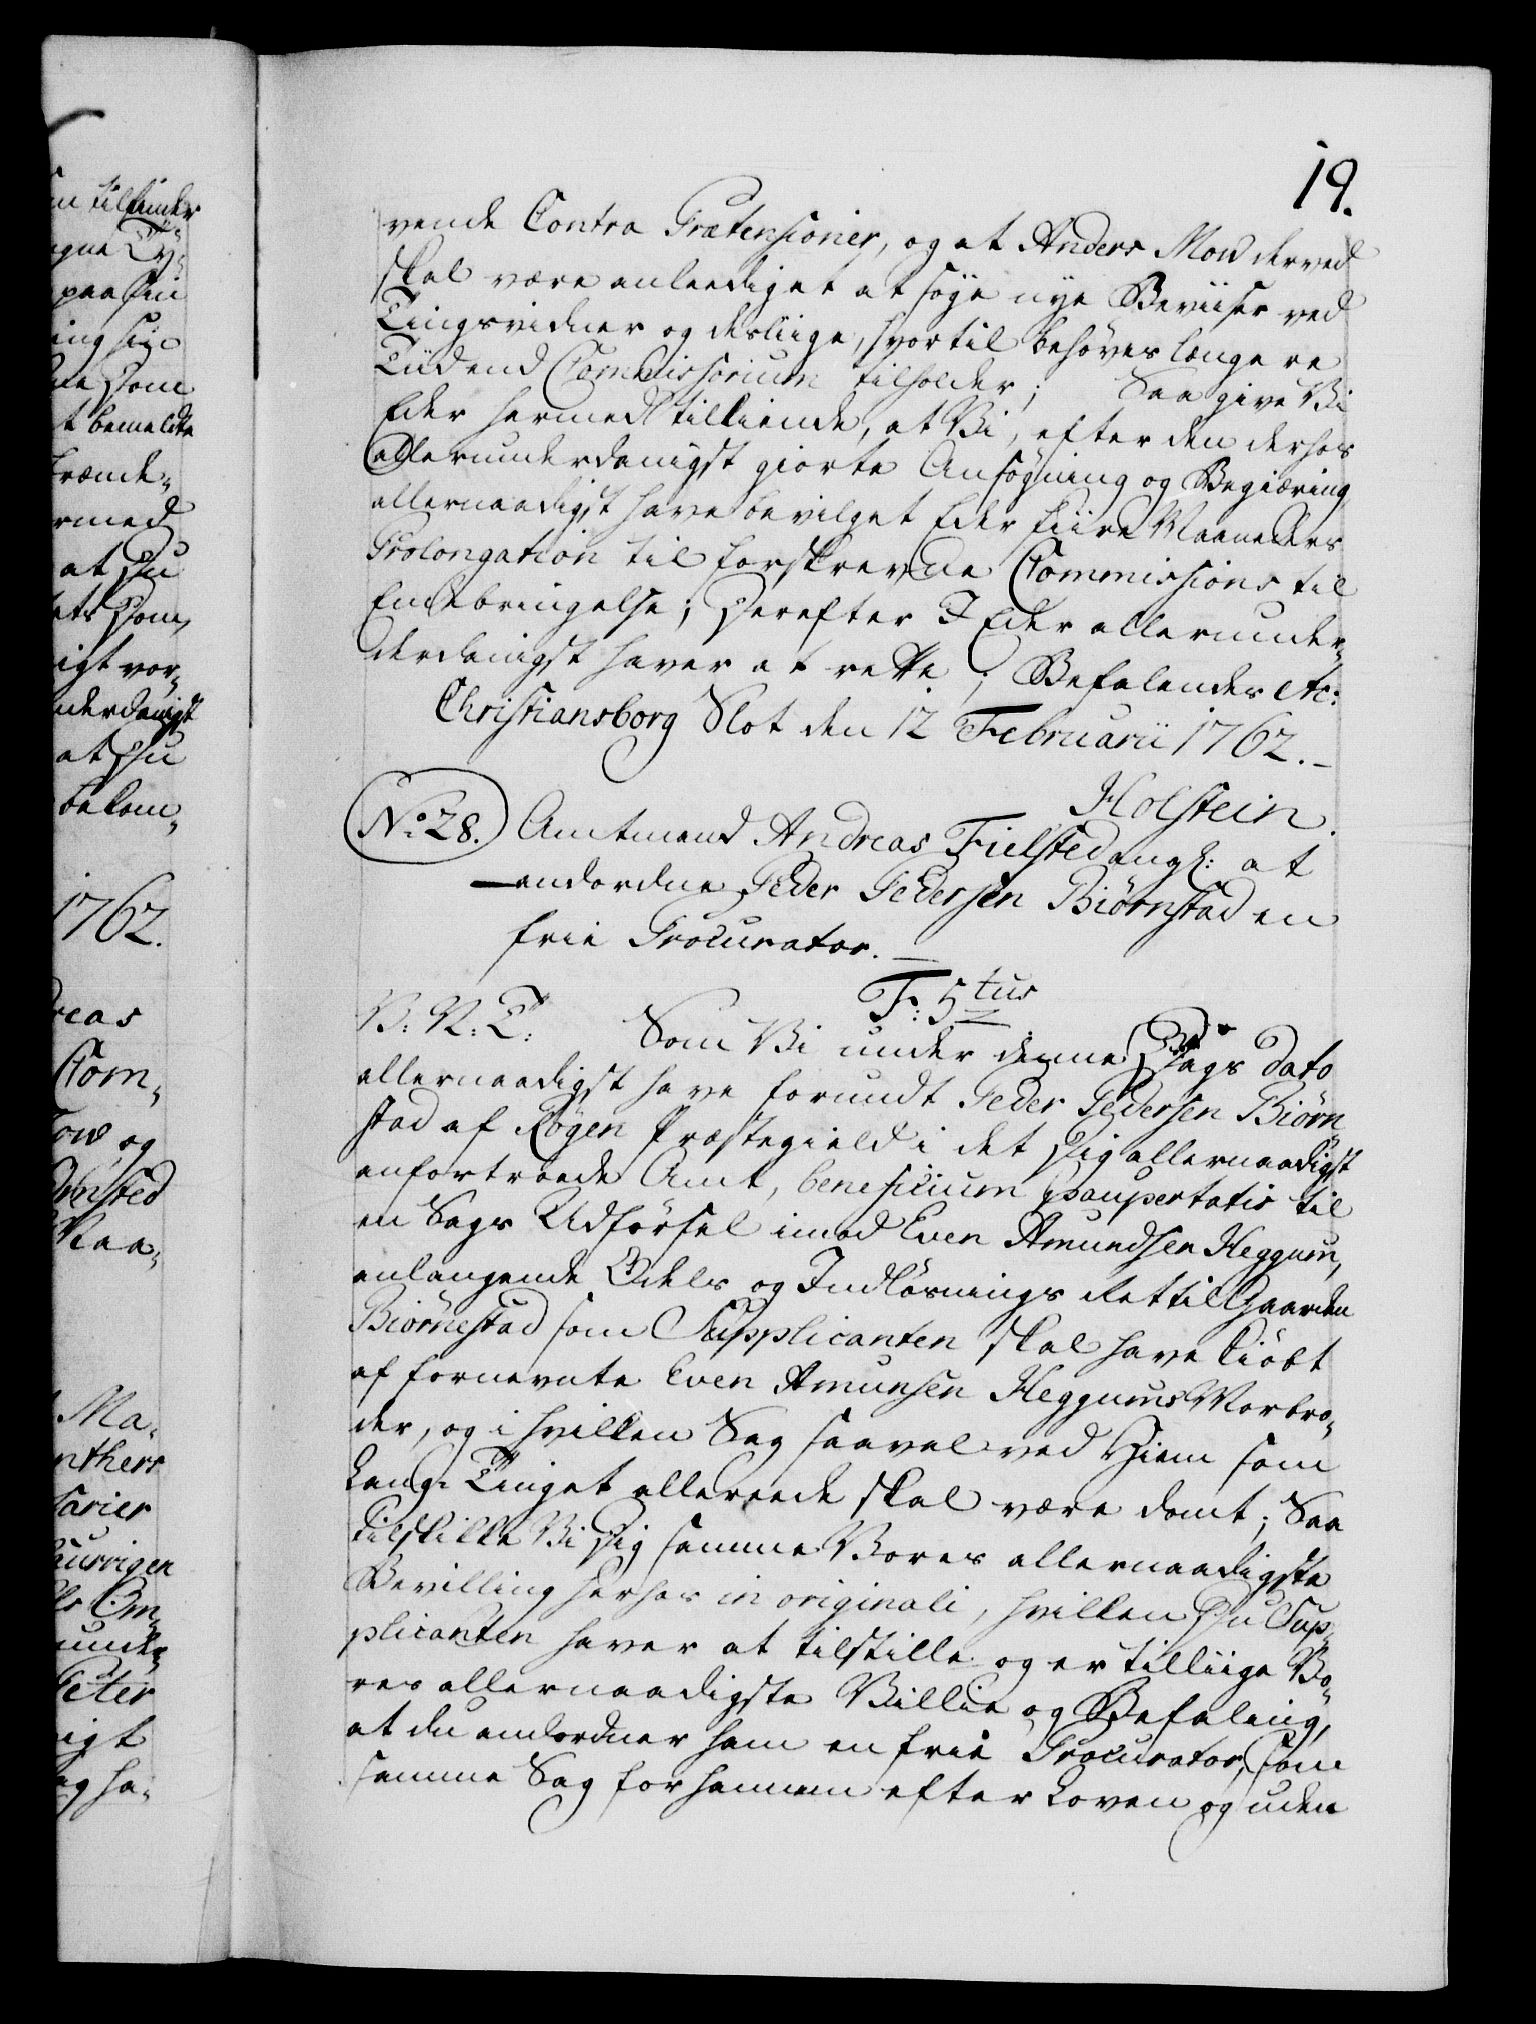 19.
vende Contra Prætensioner, og at Anders Mow derved
skal være anleediget at søge nye Beviiser ved
Tingsvidner og desliige, hvortil behøves længere
Tid end Commissorium tilholder; Saa give Vi
Eder hermed tilkiende, at Vi, efter den derhos
allerunderdanigst giorte Ansøgning og Begiæring,
allernaadigst have bevilget Eder fiire Maaneders
Prolongation til forskrevne Commissions til
Endebringelse; Derefter I Eder allerunder-
derdanigst haver at rette; Befalendes etc:
Christiansborg Slot den 12 Februarii 1762.-
Holstein.
No: 28. Amtmand Andreas Fielsted ang: at
andordne Peder Pedersen Biørnstad en
frie Procurator.-
F: 5tus
V: N: T: Som Vi under denne Dags Dato
allernaadigst have forundt Peder Pedersen Biørn-
stad af Røgen Præstegield i det Dig allernaadigst
anfortroede Amt, beneficium paupertatis til
en Sags Udførsel imod Even Amundsen Heggum,
anlangende Odels og Indløsnings Ret til Gaarden
Biørnestad som Supplicanten skal have kiøbt
af fornevnte Even Amunsen Heggums Morbro-
der, og i hvilken Sag saavel ved Hiem som
Laug-Tinget allereede skal være dømt; Saa
tilskikke Vi Dig samme Vores allernaadigste
Bevilling herhos in originali, hvilken Du Sup-
plicanten haver at tilstille og er tilliige Vo-
res allernaadigste Villie og Befaling,
at du andordner ham en frie Procurator, som
samme Sag for hannem efter Loven og uden